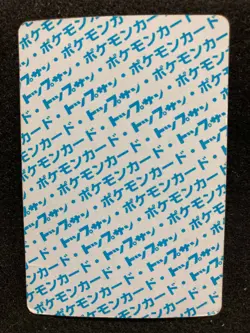 ポケモンカード・トップサン
ポケモンカード・トップサン・ポケモンカード
トップサン・ポケモンカード・トップサン
ポケモンカード・トップサン・ポケモンカード
トップサン・ポケモンカード・トップサン
ポケモンカード・トップサン・ポケモンカード
トップサン・ポケモンカード・トップサン
ポケモンカード・トップサン・ポケモンカード
トップサン・ポケモンカード・トップサン
ポケモンカード・トップサン・ポケモンカード
トップサン・ポケモンカード
ポケモンカード